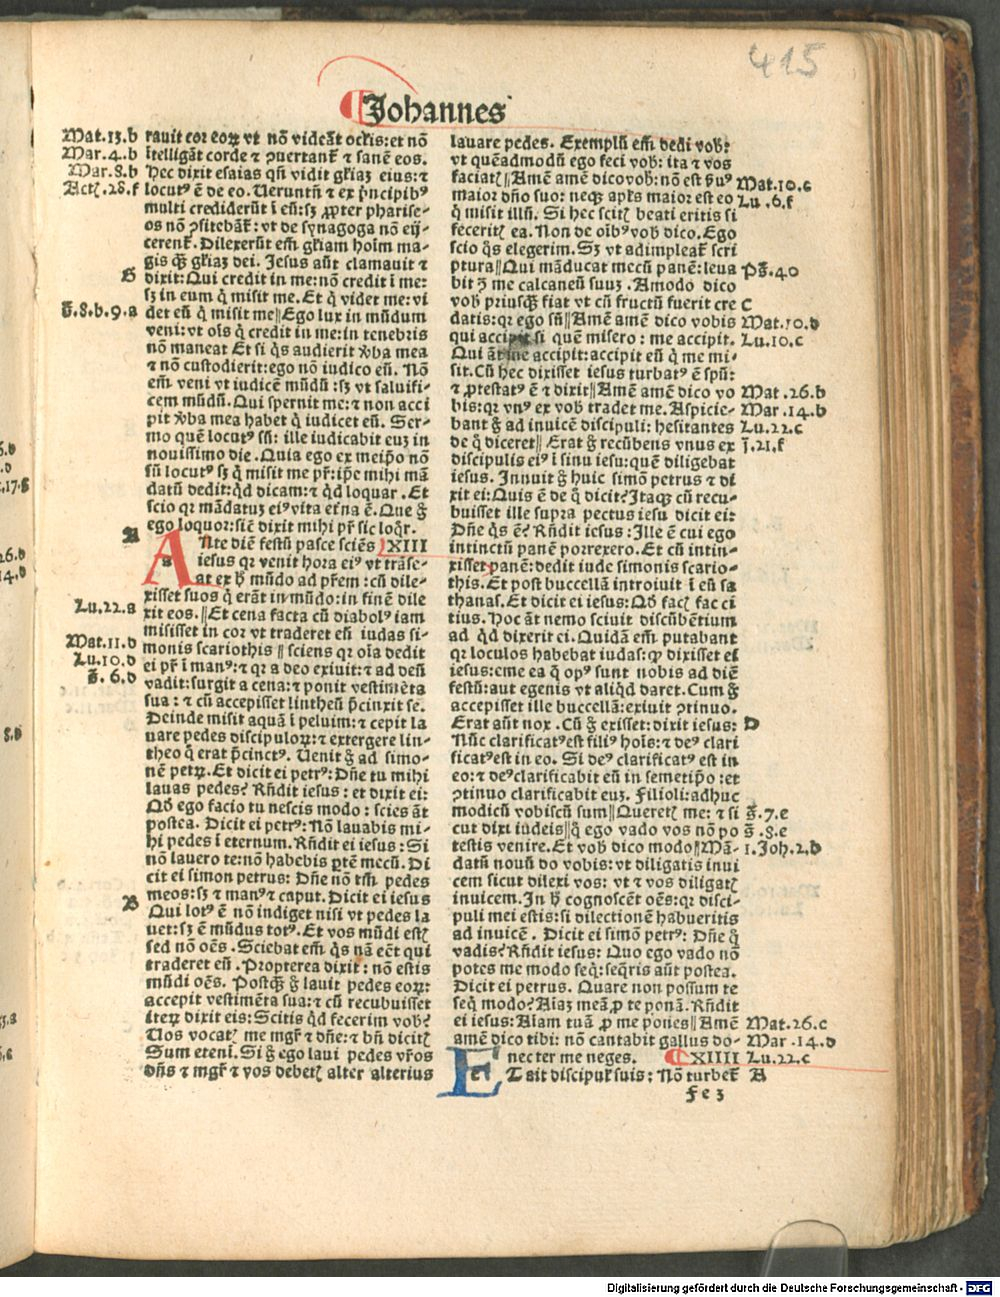 415
Johannes
Mat.13.b
Mar.4.b
Mar.8.b
Actꝭ.28.f
G
J̄.8.b.9.a
A
Lu.22.a
Mat.11.d
Lu.10.d
J̄.6.d
B
rauit cor eoꝝ vt nō videāt oclis:et nō
ītelligāt corde ⁊ ꝯuertant᷑ ⁊ sanē eos.
Hec dixit esaias qn̄ vidit gl̄iaꝫ eius:⁊
locutꝰ ē de eo. Ueruntn̄ ⁊ ex p̄ncipibꝰ
multi crediderūt ī eū:sꝫ ꝓpter pharise-
os nō ꝯfitebāt᷑: vt de synagoga nō eij-
cerent᷑. Dilexerūt em̄ gl̄iam hoīm ma-
gis qꝫ̄ gl̄iaꝫ dei. Jesus aūt clamauit ⁊
dixit: Qui credit in me: nō credit ī me:
sꝫ in eum q̄ misit me. Et q̄ videt me: vi
det eū q̄ misit me‖Ego lux in mūdum
veni: vt oīs q̄ credit in me: in tenebris
nō maneat Et si q̄s audierit v̄ba mea
⁊ nō custodierit: ego nō iudico eū. Nō
em̄ veni vt iudicē mūdū: sꝫ vt saluifi-
cem mūdū. Qui spernit me: ⁊ non acci
pit v̄ba mea habet q̄ iudicet eū. Ser-
mo quē locutꝰ sū: ille iudicabit euꝫ in
nouissimo die. Quia ego ex meip̄o nō
sū locutꝰ sꝫ q̄ misit me pr̄: ip̄e mihi mā
datū dedit: qd̄ dicam: ⁊ qd̄ loquar. Et
scio qꝛ mādatuꝫ eiꝰ vita et̄na ē. Que g̊
ego loquor: sic̄ dixit mihi pr̄ sic loq̄r.
ANte diē festū pasce sciēs XIII
a iesus qꝛ venit hora eiꝰ vt trāse-
at ex h̄ mūdo ad pr̄em: cū dile-
xisset suos q̄ erāt in mūdo: in finē dile
xit eos.‖Et cena facta cū diabolꝰ iam
misisset in cor vt traderet eū iudas si-
monis scariothis‖sciens qꝛ oīa dedit
ei pr̄ ī manꝰ: ⁊ qꝛ a deo exiuit: ⁊ ad deū
vadit: surgit a cena: ⁊ ponit vestimēta
sua: ⁊ cū accepisset lintheū p̄cinxit se.
Deinde misit aquā ī peluim: ⁊ cepit la
uare pedes discipuloꝝ: ⁊ extergere lin-
theo q̄ erat p̄cinctꝰ. Uenit g̊ ad simo-
nē petꝝ. Et dicit ei petrꝰ: Dn̄e tu mihi
lauas pedes? Rn̄dit iesus: et dixit ei:
Qd̄ ego facio tu nescis modo: scies āt
postea. Dicit ei petrꝰ: Nō lauabis mi-
hi pedes ī eternum. Rn̄dit ei iesus: Si
nō lauero te: nō habebis ꝑtē mecū. Di
cit ei simon petrus: Dn̄e nō tm̄ pedes
meos: sꝫ ⁊ manꝰ ⁊ caput. Dicit ei iesus
Qui lotꝰ ē nō indiget nisi vt pedes la
uet: sꝫ ē mūdus totꝰ. Et vos mūdi estꝭ
sed nō oēs. Sciebat em̄ q̄s nā eēt qui
traderet eū. Propterea dixit: nō estis
mūdi oēs. Postqꝫ̄ g̊ lauit pedes eoꝝ:
accepit vestimēta sua: ⁊ cū recubuisset
iteꝝ dixit eis: Scitis qd̄ fecerim vob̄?
Uos vocatꝭ me mgr̄ ⁊ dn̄e: ⁊ bn̄ dicitꝭ
Sum eteni. Si g̊ ego laui pedes vr̄os
dn̄s ⁊ mgr̄ ⁊ vos debetꝭ alter alterius
lauare pedes. Exemplū em̄ dedi vob̄:
vt quēadmodū ego feci vob̄: ita ⁊ vos
faciatꝭ‖Amē amē dico vob̄: nō est s̄uꝰ
maior dn̄o suo: neqꝫ apl̄s maior est eo
q̄ misit illū. Si hec scitꝭ beati eritis si
feceritꝭ ea. Non de oībꝰ vob̄ dico. Ego
scio q̄s elegerim. Sꝫ vt adimpleat᷑ scri
ptura‖Qui māducat mecū panē: leua
bit ꝯ̄ me calcaneū suuꝫ. Amodo dico
vob̄ priusqꝫ̄ fiat vt cū fructū fuerit cre
datis: qꝛ ego sū‖Amē amē dico vobis
qui accipit si quē misero: me accipit.
Qui āt me accipit: accipit eū q̄ me mi-
sit. Cū hec dixisset iesus turbatꝰ ē spū:
⁊ ꝓtestatꝰ ē ⁊ dixit‖Amē amē dico vo
bis: qꝛ vnꝰ ex vob̄ tradet me. Aspicie-
bant g̊ ad inuicē discipuli: hesitantes
de q̄ diceret‖Erat g̊ recūbens vnus ex
discipulis eiꝰ ī sinu iesu: quē diligebat
iesus. Innuit g̊ huic simō petrus ⁊ di
xit ei: Quis ē de q̄ dicit? Itaqꝫ cū recu-
buisset ille supra pectus iesu dicit ei:
Dn̄e q̄s ē? Rn̄dit iesus: Ille ē cui ego
intinctū panē porrexero. Et cū intin-
xisset panē: dedit iude simonis scario-
this. Et post buccellā introiuit ī eū sa
thanas. Et dicit ei iesus: Qd̄ facꝭ fac ci
tius. Hoc āt nemo sciuit discūbentium
ad qd̄ dixerit ei. Quidā em̄ putabant
qꝛ loculos habebat iudas: ꝙ dixisset ei
iesus: eme ea q̄ opꝰ sunt nobis ad diē
festū: aut egenis vt aliqd̄ daret. Cum g̊
accepisset ille buccellā: exiuit ꝯtinuo.
Erat aūt nox. Cū g̊ exisset: dixit iesus:
Nūc clarificatꝰ est filiꝰ hoīs: ⁊ deꝰ clari
ficatꝰ est in eo. Si deꝰ clarificatꝰ est in
eo: ⁊ deꝰ clarificabit eū in semetip̄o: et
ꝯtinuo clarificabit euꝫ. Filioli: adhuc
modicū vobiscū sum‖Queretꝭ me: ⁊ si
cut dixi iudeis‖q̄ ego vado vos nō po
testis venire. Et vob̄ dico modo‖Mā-
datū nouū do vobis: vt diligatis inui
cem sicut dilexi vos: vt ⁊ vos diligatꝭ
inuicem. In h̄ cognoscēt oēs: qꝛ disci-
puli mei estis: si dilectionē habueritis
ad inuicē. Dicit ei simō petrꝰ: Dn̄e q̄
vadis? Rn̄dit iesus: Quo ego vado nō
potes me modo seq̄: seq̄ris aūt postea.
Dicit ei petrus. Quare non possum te
seq̄ modo? Aīaꝫ meā ꝓ te ponā. Rn̄dit
ei iesus: Aīam tuā ꝓ me pones‖Amē
amē dico tibi: nō cantabit gallus do-
nec ter me neges. XIIII
Et ait discipul̄ suis: Nō turbet᷑
Mat.10.c
Lu.6.f
Pṡ.40
C
Mat.10.d
Lu.10.c
Mat.26.b
Mar.14.b
Lu.22.c
J̄.21.f
D
J̄.7.e
J̄.8.e
1.Joh.2.b
Mat.26.c
Mar.14.d
Lu.22.c
A
fe 3
Digitalisierung gefördert durch die Deutsche Forschungsgemeinschaft - DFG